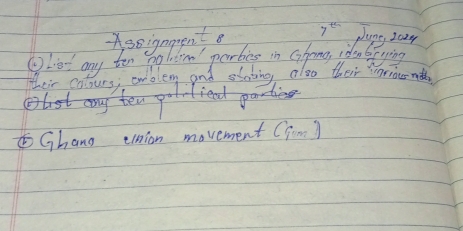 Assignment 8 7th June, 2024
① List any ten political parties in Ghana, identifying
their colours, emblem and slogan, also their various
② List any ten political parties
① Ghana union movement (Gum)